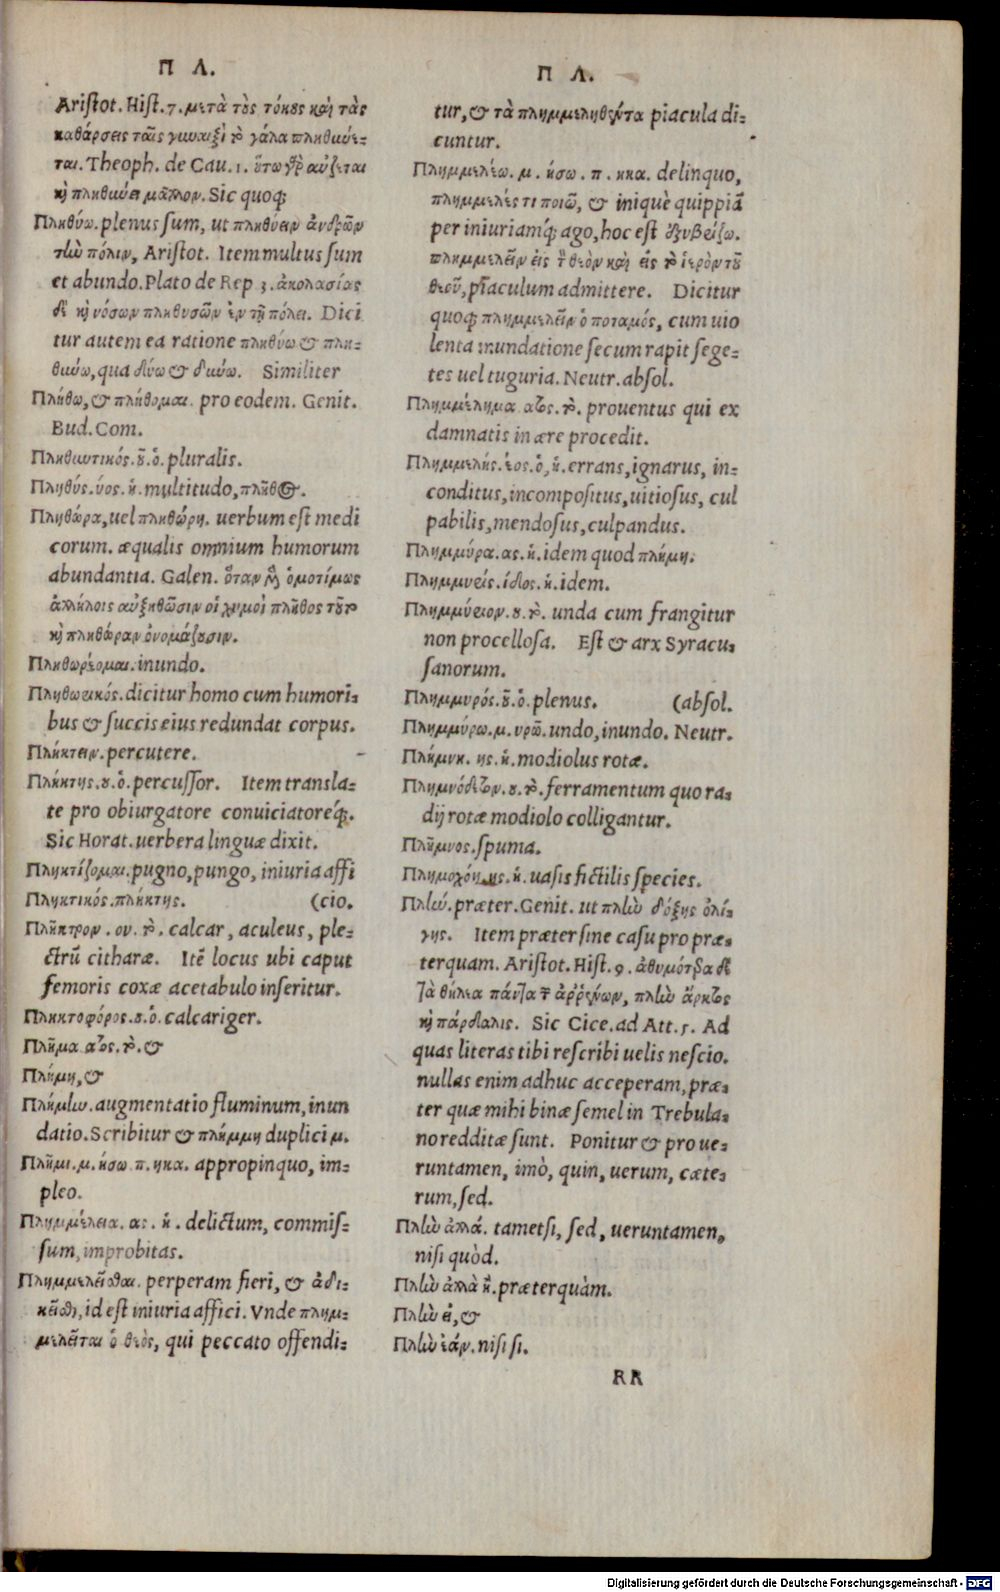 Π Λ.
Aristot. Hist. 7. μετὰ τοὺς τόκους καὶ τὰς
καθάρσεις ταῖς γυναιξὶ τὸ γάλα πληθύνε-
ται. Theoph. de Cau. 1. οὕτω γὰρ αὔξεται
καὶ πληθύνει μᾶλλον. Sic quoq;
Πληθύω. plenus sum, ut πληθύειν ἀνδρῶν
τὴν πόλιν, Aristot. Item multus sum
et abundo. Plato de Rep 3. ἀκολασίας
δὲ καὶ νόσων πληθυσῶν ἐν τῇ πόλει. Dici
tur autem ea ratione πληθύω & πλη-
θύνω, qua δύω & δύνω. Similiter
Πλήθω, & πλήθομαι. pro eodem. Genit.
Bud. Com.
Πληθυντικός. οῦ. ὁ. pluralis.
Πληθύς. ύος. ἡ. multitudo, πλῆθος.
Πληθώρα, uel πληθώρη. uerbum est medi
corum. æqualis omnium humorum
abundantia. Galen. ὅταν μὲν ὁμοτίμως
ἀλλήλοις αὐξηθῶσιν οἱ χυμοὶ πλῆθος τοῦτο
καὶ πληθώραν ὀνομάζουσιν.
Πληθωρέομαι. inundo.
Πληθωρικός. dicitur homo cum humori-
bus & succis eius redundat corpus.
Πλήκτειν. percutere.
Πλήκτης. ου. ὁ. percussor. Item transla-
te pro obiurgatore conuiciatoreq́;.
Sic Horat. uerbera linguæ dixit.
Πληκτίζομαι. pugno, pungo, iniuria affi
Πληκτικός. πλήκτης. (cio.
Πλῆκτρον. ου. τὸ. calcar, aculeus, ple-
ctrũ citharæ. Itẽ locus ubi caput
femoris coxæ acetabulo inseritur.
Πληκτοφόρος. ου. ὁ. calcariger.
Πλῆμα ατος. τὸ. &
Πλήμη, &
Πλήμην. augmentatio fluminum, inun
datio. Scribitur & πλήμμη duplici μ.
Πλῆμι. μ. ήσω. π. ηκα. appropinquo, im-
pleo.
Πλημμέλεια. ας. ἡ. delictum, commis-
sum, improbitas.
Πλημμελεῖσθαι. perperam fieri, & ἀδι-
κεῖσθαι, id est iniuria affici. Vnde πλημ-
μελεῖται ὁ θεὸς, qui peccato offendi-
Π Λ.
tur, & τὰ πλημμεληθέντα piacula di-
cuntur.
Πλημμελέω. μ. ήσω. π. ηκα. delinquo,
πλημμελές τι ποιῶ, & iniquè quippiã
per iniuriamq́; ago, hoc est ἐξυβρίζω.
πλημμελεῖν εἰς τὸν θεὸν καὶ εἰς τὸ ἱερὸν τοῦ
θεοῦ, piaculum admittere. Dicitur
quoq; πλημμελεῖν ὁ ποταμός, cum uio
lenta inundatione secum rapit sege-
tes uel tuguria. Neutr. absol.
Πλημμέλημα ατος. τὸ. prouentus qui ex
damnatis in ære procedit.
Πλημμελής. έος. ὁ, ἡ. errans, ignarus, in-
conditus, incompositus, uitiosus, cul
pabilis, mendosus, culpandus.
Πλημμύρα. ας. ἡ. idem quod πλήμη.
Πλημμυρίς. ίδος. ἡ. idem.
Πλημμύριον. ου. τὸ. unda cum frangitur
non procellosa. Est & arx Syracu-
sanorum.
Πλημμυρός. οῦ. ὁ. plenus. (absol.
Πλημμύρω. μ. υρῶ. undo, inundo. Neutr.
Πλήμνη. ης. ἡ. modiolus rotæ.
Πλημνόδετον. ου. τὸ. ferramentum quo ra-
dij rotæ modiolo colligantur.
Πλῆμνος. spuma.
Πλημοχόη. ης. ἡ. uasis fictilis species.
Πλήν. præter. Genit. ut πλὴν δόξης ὀλί-
γης. Item præter sine casu pro præ-
terquam. Aristot. Hist. 9. ἀθυμότερα δὲ
τὰ θήλεα πάντα τῶν ἀρρένων, πλὴν ἄρκτος
καὶ πάρδαλις. Sic Cice. ad Att. 5. Ad
quas literas tibi rescribi uelis nescio.
nullas enim adhuc acceperam, præ-
ter quæ mihi binæ semel in Trebula-
no redditæ sunt. Ponitur & pro ue-
runtamen, imò, quin, uerum, cæte-
rum, sed.
Πλὴν ἀλλά. tametsi, sed, ueruntamen,
nisi quòd.
Πλὴν ἀλλὰ ἤ. præterquàm.
Πλὴν εἰ, &
Πλὴν ἐάν. nisi si.
RR
Digitalisierung gefördert durch die Deutsche Forschungsgemeinschaft - DFG